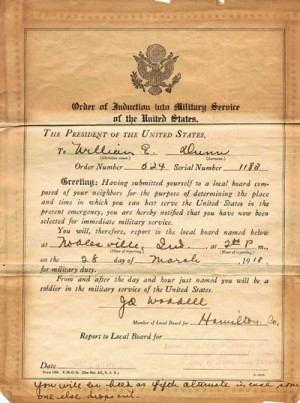 Order of Induction into Military Service
of the United States.
THE PRESIDENT OF THE UNITED STATES,
To William E. Dunn
(Christian name) (Surname)
Order Number 524 Serial Number 1183
Greeting: Having submitted yourself to a local board com-
posed of your neighbors for the purpose of determining the place
and time in which you can best serve the United States in the
present emergency, you are hereby notified that you have now been
selected for immediate military service.
You will, therefore, report to the local board named below
at Noblesville, Ind. at 2 P m.,
(Place of reporting) (Hour of reporting)
on the 28 day of March, 1918,
for military duty.
From and after the day and hour just named you will be a
soldier in the military service of the United States.
Jd Waddell
Member of Local Board for Hamilton Co.
Report to Local Board for
Date
You will be held as fifth alternate in case some
one else drops out.